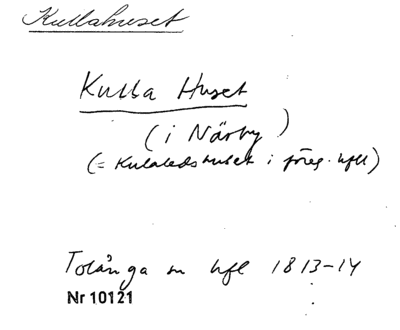 Kullahuset
Kulla Huset
(i Närby)
(= Kulaledshuset i föreg. hfl)
Tolånga sn hfl 1813-14
Nr 10121